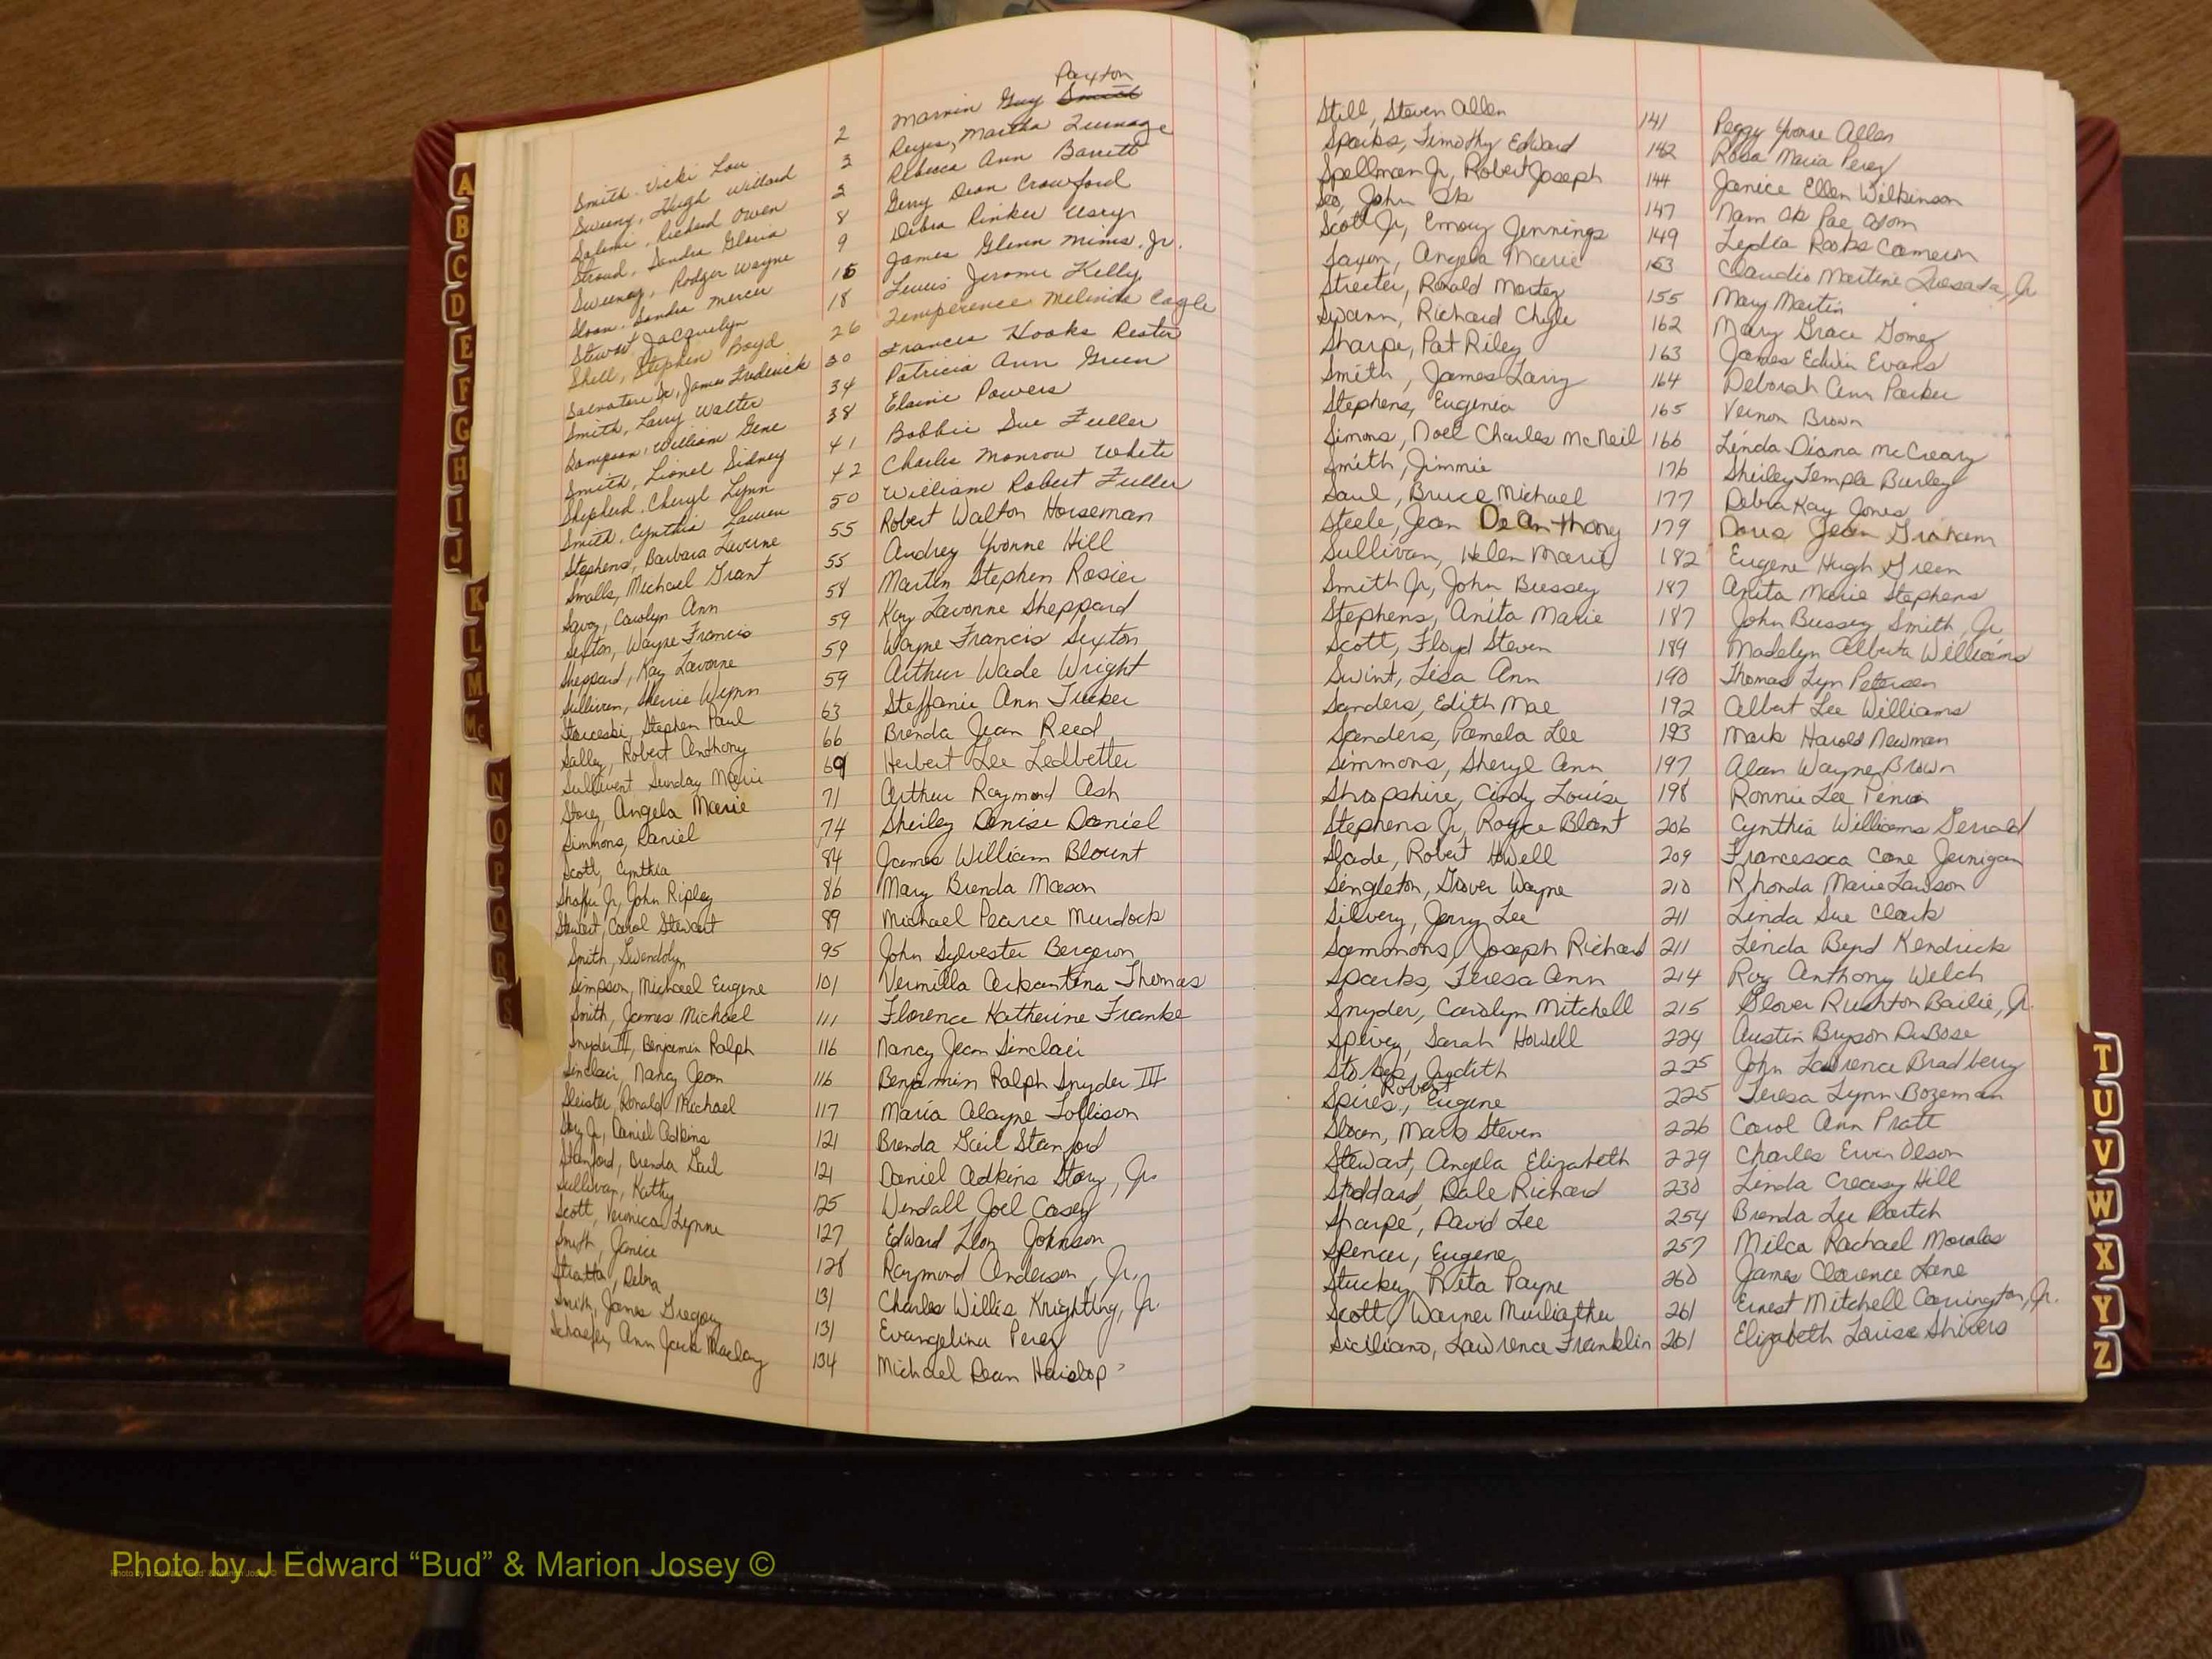 Smith, Vicki Lou 2 Marvin Guy Paxton
Sweeny, Hugh Willard 3 Reyes, Martha Turnage
Salemi, Richard Owen 3 Rebecca Ann Barrett
Stroud, Sandra Gloria 8 Gerry Dean Crawford
Sweeney, Rodger Wayne 9 Debra Rinker Usry
Sloan, Sandra Mercer 15 James Glenn Mims, Jr.
Stewart, Jacquelyn 18 Lewis Jerome Kelly
Shell, Stephen Boyd 26 Temperence Melinda Cagle
Salvatore Jr, James Frederick 30 Frances Hooks Rester
Smith, Larry Walter 34 Patricia Ann Green
Sampson, William Gene 38 Elaine Powers
Smith, Lionel Sidney 41 Bobbie Sue Fuller
Shepherd, Cheryl Lynn 42 Charles Monrow White
Smith, Cynthia Lauren 50 William Robert Fuller
Stephens, Barbara Laverne 55 Robert Walton Horseman
Smalls, Michael Grant 55 Audrey Yvonne Hill
Savoy, Carolyn Ann 58 Martin Stephen Rosier
Sexton, Wayne Francis 59 Kay Lavonne Sheppard
Sheppard, Kay Lavonne 59 Wayne Francis Sexton
Sullivan, Sherrie Wynn 59 Arthur Wade Wright
Stephen Paul 63 Steffanie Ann Tucker
Salley, Robert Anthony 66 Brenda Jean Reed
Sullivent Sunday Marie 69 Herbert Lee Ledbetter
Storey, Angela Marie 71 Arthur Raymond Ash
Simmons, Daniel 74 Sheiley Denise Daniel
Scott, Cynthia 84 James William Blount
Shafer Jr, John Ripley 86 Mary Brenda Mason
Stewart, Carol Stewart 89 Michael Pearce Murdock
Smith, Gwendolyn 95 John Sylvester Bergeron
Simpson, Michael Eugene 101 Vermilla Arkantina Thomas
Smith, James Michael 111 Florence Katherine Franke
Snyder III, Benjamin Ralph 116 Nancy Jean Sinclair
Sinclair, Nancy Jean 116 Benjamin Ralph Snyder III
Sleister, Ronald Michael 117 Maria Alayne Tollison
Story Jr, Daniel Adkins 121 Brenda Gail Stanford
Stanford, Brenda Gail 121 Daniel Adkins Story, Jr.
Sullivan, Kathy 125 Wendall Joel Casey
Scott, Veronica Lynne 127 Edward Leon Johnson
Smith, Janice 128 Raymond Anderson, Jr.
Stratta, Debra 131 Charles Willis Knightling, Jr.
Smith, James Gregory 131 Evangelina Perez
Schaefer, Ann Jack Maclay 134 Michael Dean Haislop
Still, Steven Allen 141 Peggy Yvonne Allen
Sparks, Timothy Edward 142 Rosa Maria Perez
Spellman Jr, Robert Joseph 144 Janice Ellen Wilkinson
Seo, John Ok 147 Nam Ok Pae Odom
Scott Jr, Emory Jennings 149 Lydia Rooks Cameron
Saxon, Angela Marie 153 Claudio Martine Quesada, Jr
Streeter, Ronald Mortez 155 Mary Martin
Swann, Richard Clyde 162 Mary Grace Gomez
Sharpe, Pat Riley 163 James Edwin Evans
Smith, James Larry 164 Deborah Ann Parker
Stephens, Eugenia 165 Vernon Brown
Simons, Noel Charles McNeil 166 Linda Diana McCreary
Smith, Jimmie 176 Shirley Temple Burley
Saul, Bruce Michael 177 Debra Kay Jones
Steele, Jean DeAnthony 179 Doris Jean Graham
Sullivan, Helen Marie 182 Eugene Hugh Green
Smith Jr, John Bussey 187 Anita Marie Stephens
Stephens, Anita Marie 187 John Bussey Smith, Jr.
Scott, Floyd Steven 189 Madelyn Alberta Williams
Swint, Lisa Ann 190 Thomas Lyn Petersen
Sanders, Edith Mae 192 Albert Lee Williams
Sanders, Pamela Lee 193 Mark Harold Newman
Simmons, Sheryl Ann 197 Alan Wayne Brown
Shropshire, Cindy Louise 198 Ronnie Lee Penix
Stephens Jr, Royce Blant 206 Cynthia Williams Serrald
Slade, Robert Howell 209 Francessca Cone Jernigan
Singleton, Grover Wayne 210 Rhonda Marie Lawson
Silvery, Jerry Lee 211 Linda Sue Clark
Sammons, Joseph Richard 211 Linda Byrd Kendrick
Sparks, Teresa Ann 214 Roy Anthony Welch
Snyder, Carolyn Mitchell 215 Glover Rushton Bailie, Jr.
Spivey, Sarah Howell 224 Austin Bryson DuBose
Judith 225 John Lawrence Bradberry
Spires, Robert Eugene 225 Teresa Lynn Bozeman
Sloan, Mark Steven 226 Carol Ann Pratt
Stewart, Angela Elizabeth 229 Charles Erwin Olson
Stoddard, Dale Richard 230 Linda Creasy Hill
Sharpe, David Lee 254 Brenda Lee Partch
Spencer, Eugene 257 Milca Rachael Morales
Stuckey, Rita Payne 260 James Clarence Lane
Scott, Warner 261 Ernest Mitchell Carrington, Jr.
Siciliano, Lawrence Franklin 261 Elizabeth Louise Shivers
A
B
C
D
E
F
G
H
I
J
K
L
M
Mc
N
O
P
Q
R
S
T
U
V
W
X
Y
Z
Photo by J Edward “Bud” & Marion Josey ©